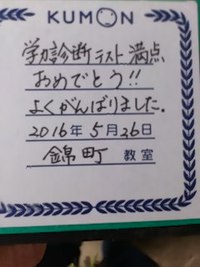 KUMON
学力診断テスト満点
おめでとう!!
よくがんばりました.
2016年5月26日
錦町 教室